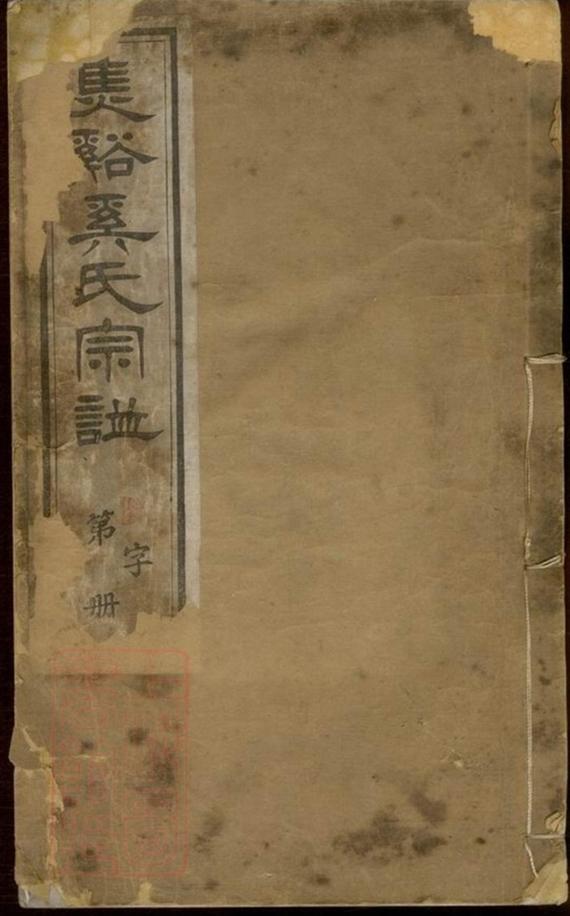 焦谿奚氏宗譜
字
第 册